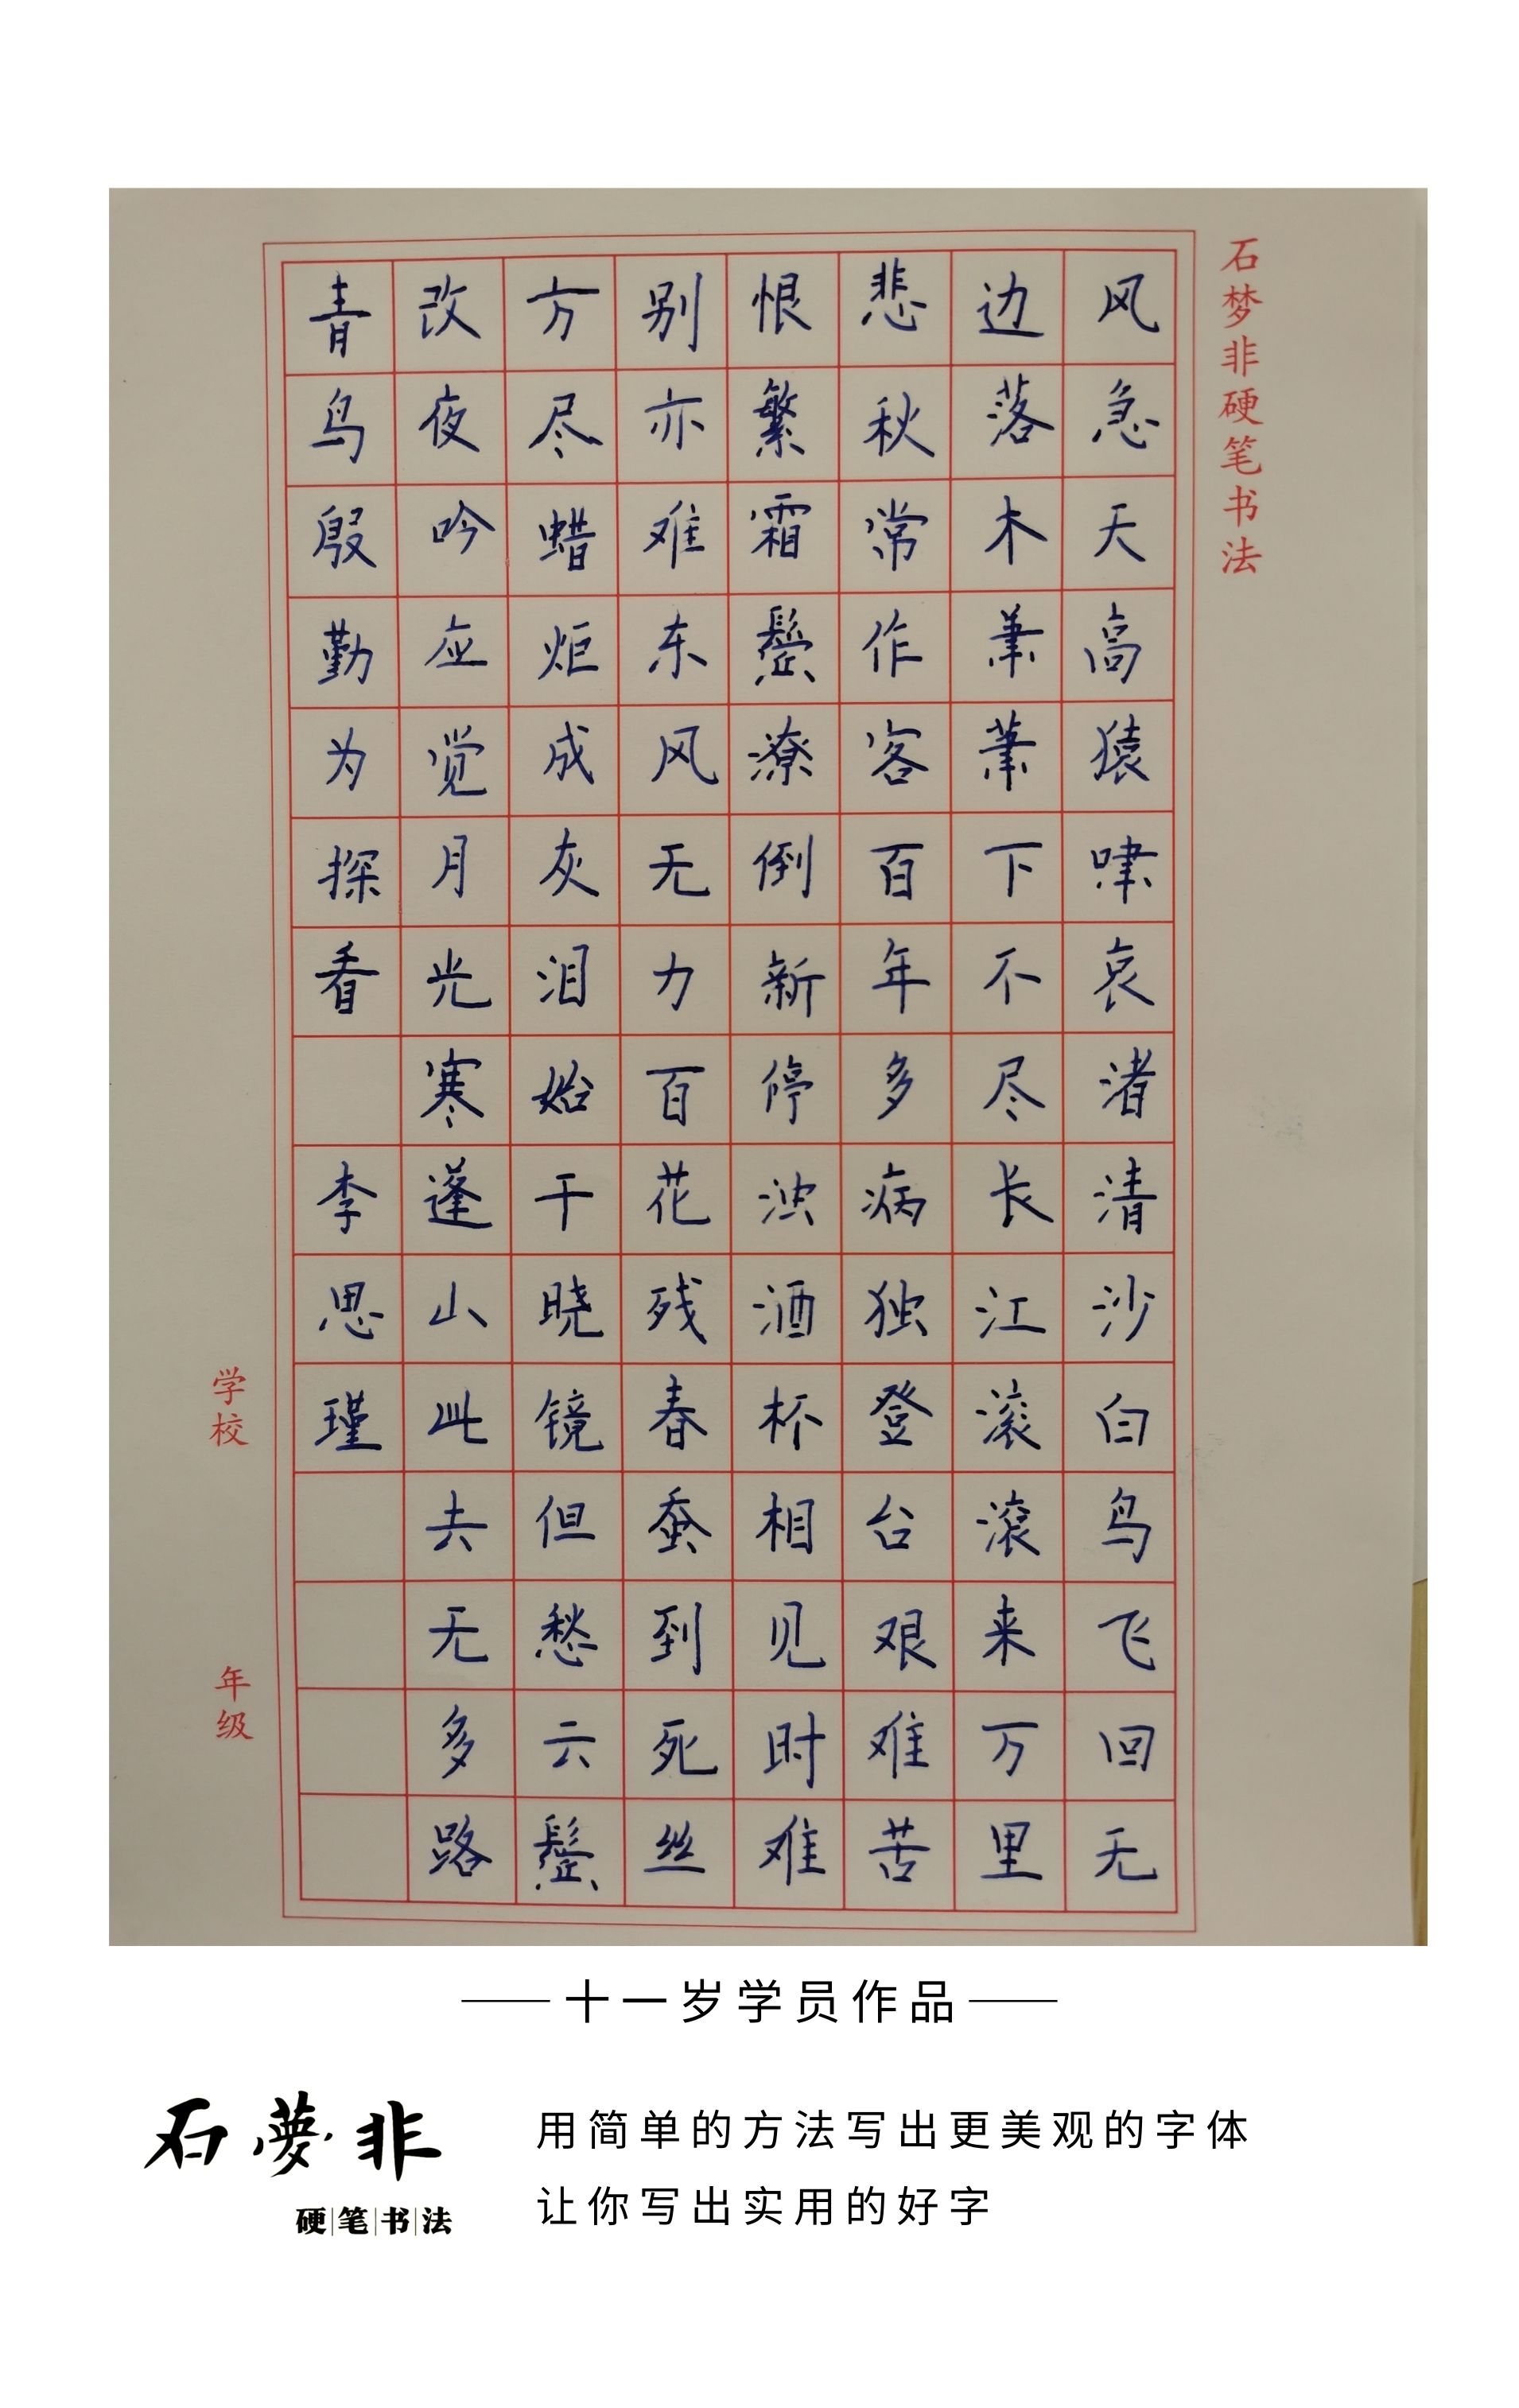 石梦非硬笔书法
风急天高猿啸哀渚清沙白鸟飞回无
边落木萧萧下不尽长江滚滚来万里
悲秋常作客百年多病独登台艰难苦
恨繁霜鬓潦倒新停浊酒杯相见时难
别亦难东风无力百花残春蚕到死丝
方尽蜡炬成灰泪始干晓镜但愁云鬓
改夜吟应觉月光寒蓬山此去无多路
青鸟殷勤为探看 李思瑾
学校 年级
十一岁学员作品
石夢非
硬笔书法
用简单的方法写出更美观的字体
让你写出实用的好字